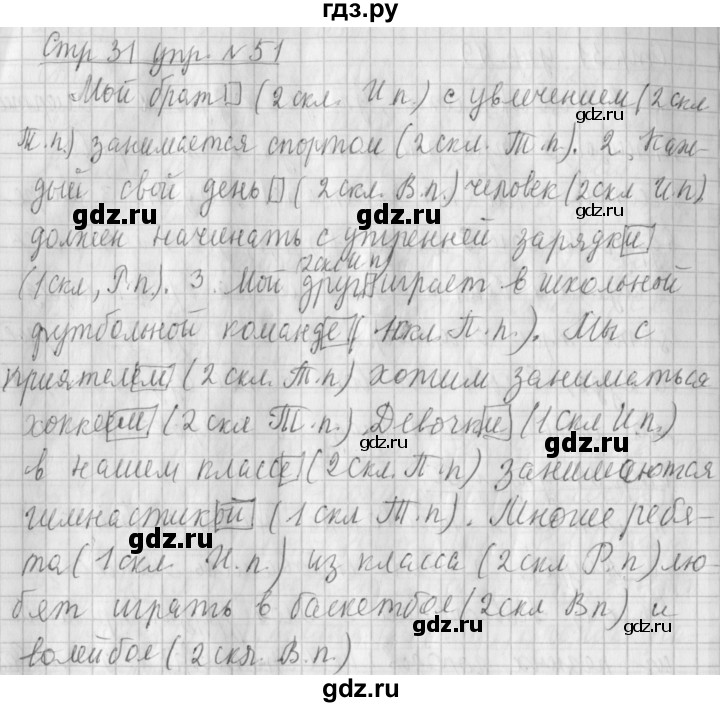 гдз.ру
Стр 31 упр. № 51
Мой брат (2 скл. И.п.) с увлечением (2 скл
gdz.ru
Т.п.) занимается спортом (2 скл. Т.п). 2. Каж-
дый свой день (2 скл. В.п.) человек (2 скл И.п)
gdz.ru gdz.ru
должен начинать с утренней зарядки
(2 скл И.п)
(1 скл, Р.п). 3. Мой друг играет в школьной
gdz.ru
футбольной команде (1 скл. П.п.). Мы с
приятелем (2 скл. Т.п) хотим заниматься
хоккеем (2 скл Т.п) Девочки (1 скл И.п.)
gdz.ru gdz.ru
в нашем классе (2 скл. П.п) занимаются
гимнастикой (1 скл Т.п). Многие ребя-
gdz.ru
та (1 скл. И.п.) из класса (2 скл Р.п) лю-
gdz.ru
бят играть в баскетбол (2 скл В.п) и
gdz.ru
волейбол (2 скл. В.п.)
gdz.ru
gdz.ru